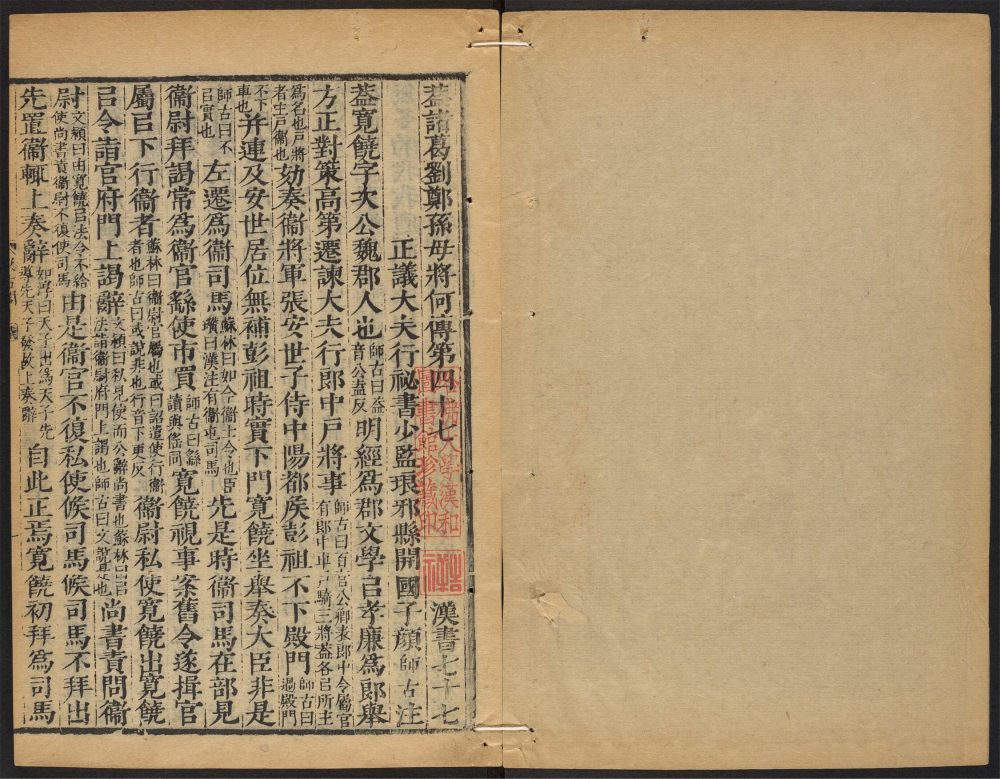 蓋諸葛劉鄭孫毋將何傳第四十七
漢書七十七
正議大夫行祕書少監琅邪縣開國子顏師古注
蓋寬饒字次公魏郡人也師古曰蓋音公盍反明經爲郡文學㠯孝廉爲郎舉
方正對策高第遷諫大夫行郎中戶將事師古曰百官公卿表郎中令屬官有郎中車戶騎三將蓋各㠯所主
爲名也戶將者主戶衞也劾奏衞將軍張安世子侍中陽都侯彭祖不下殿門師古曰過殿門
不下車也并連及安世居位無補彭祖時實下門寬饒坐舉奏大臣非是
師古曰不㠯實也左遷爲衞司馬蘇林曰如今衞士令也臣瓚曰漢注有衞屯司馬先是時衞司馬在部見
衞尉拜謁常爲衞官繇使市買師古曰繇讀與傜同寬饒視事案舊令遂揖官
屬㠯下行衞者蘇林曰衞尉官屬也或曰詔遣使行衞者也師古曰或說非也行音下更反衞尉私使寬饒出寬饒
㠯令詣官府門上謁辭文穎曰私見使而公辭尚書也蘇林曰㠯法詣衞尉府門上謁也師古曰文說是也尚書責問衞
尉文穎曰由寬饒㠯法令不給使尚書責衞尉不復使司馬由是衞官不復私使候司馬候司馬不拜出
先置衞輒上奏辭如淳曰天子出爲天子先導先天子發故上奏辭自此正焉寬饒初拜爲司馬
哈佛大學漢和
圖書館珍藏印